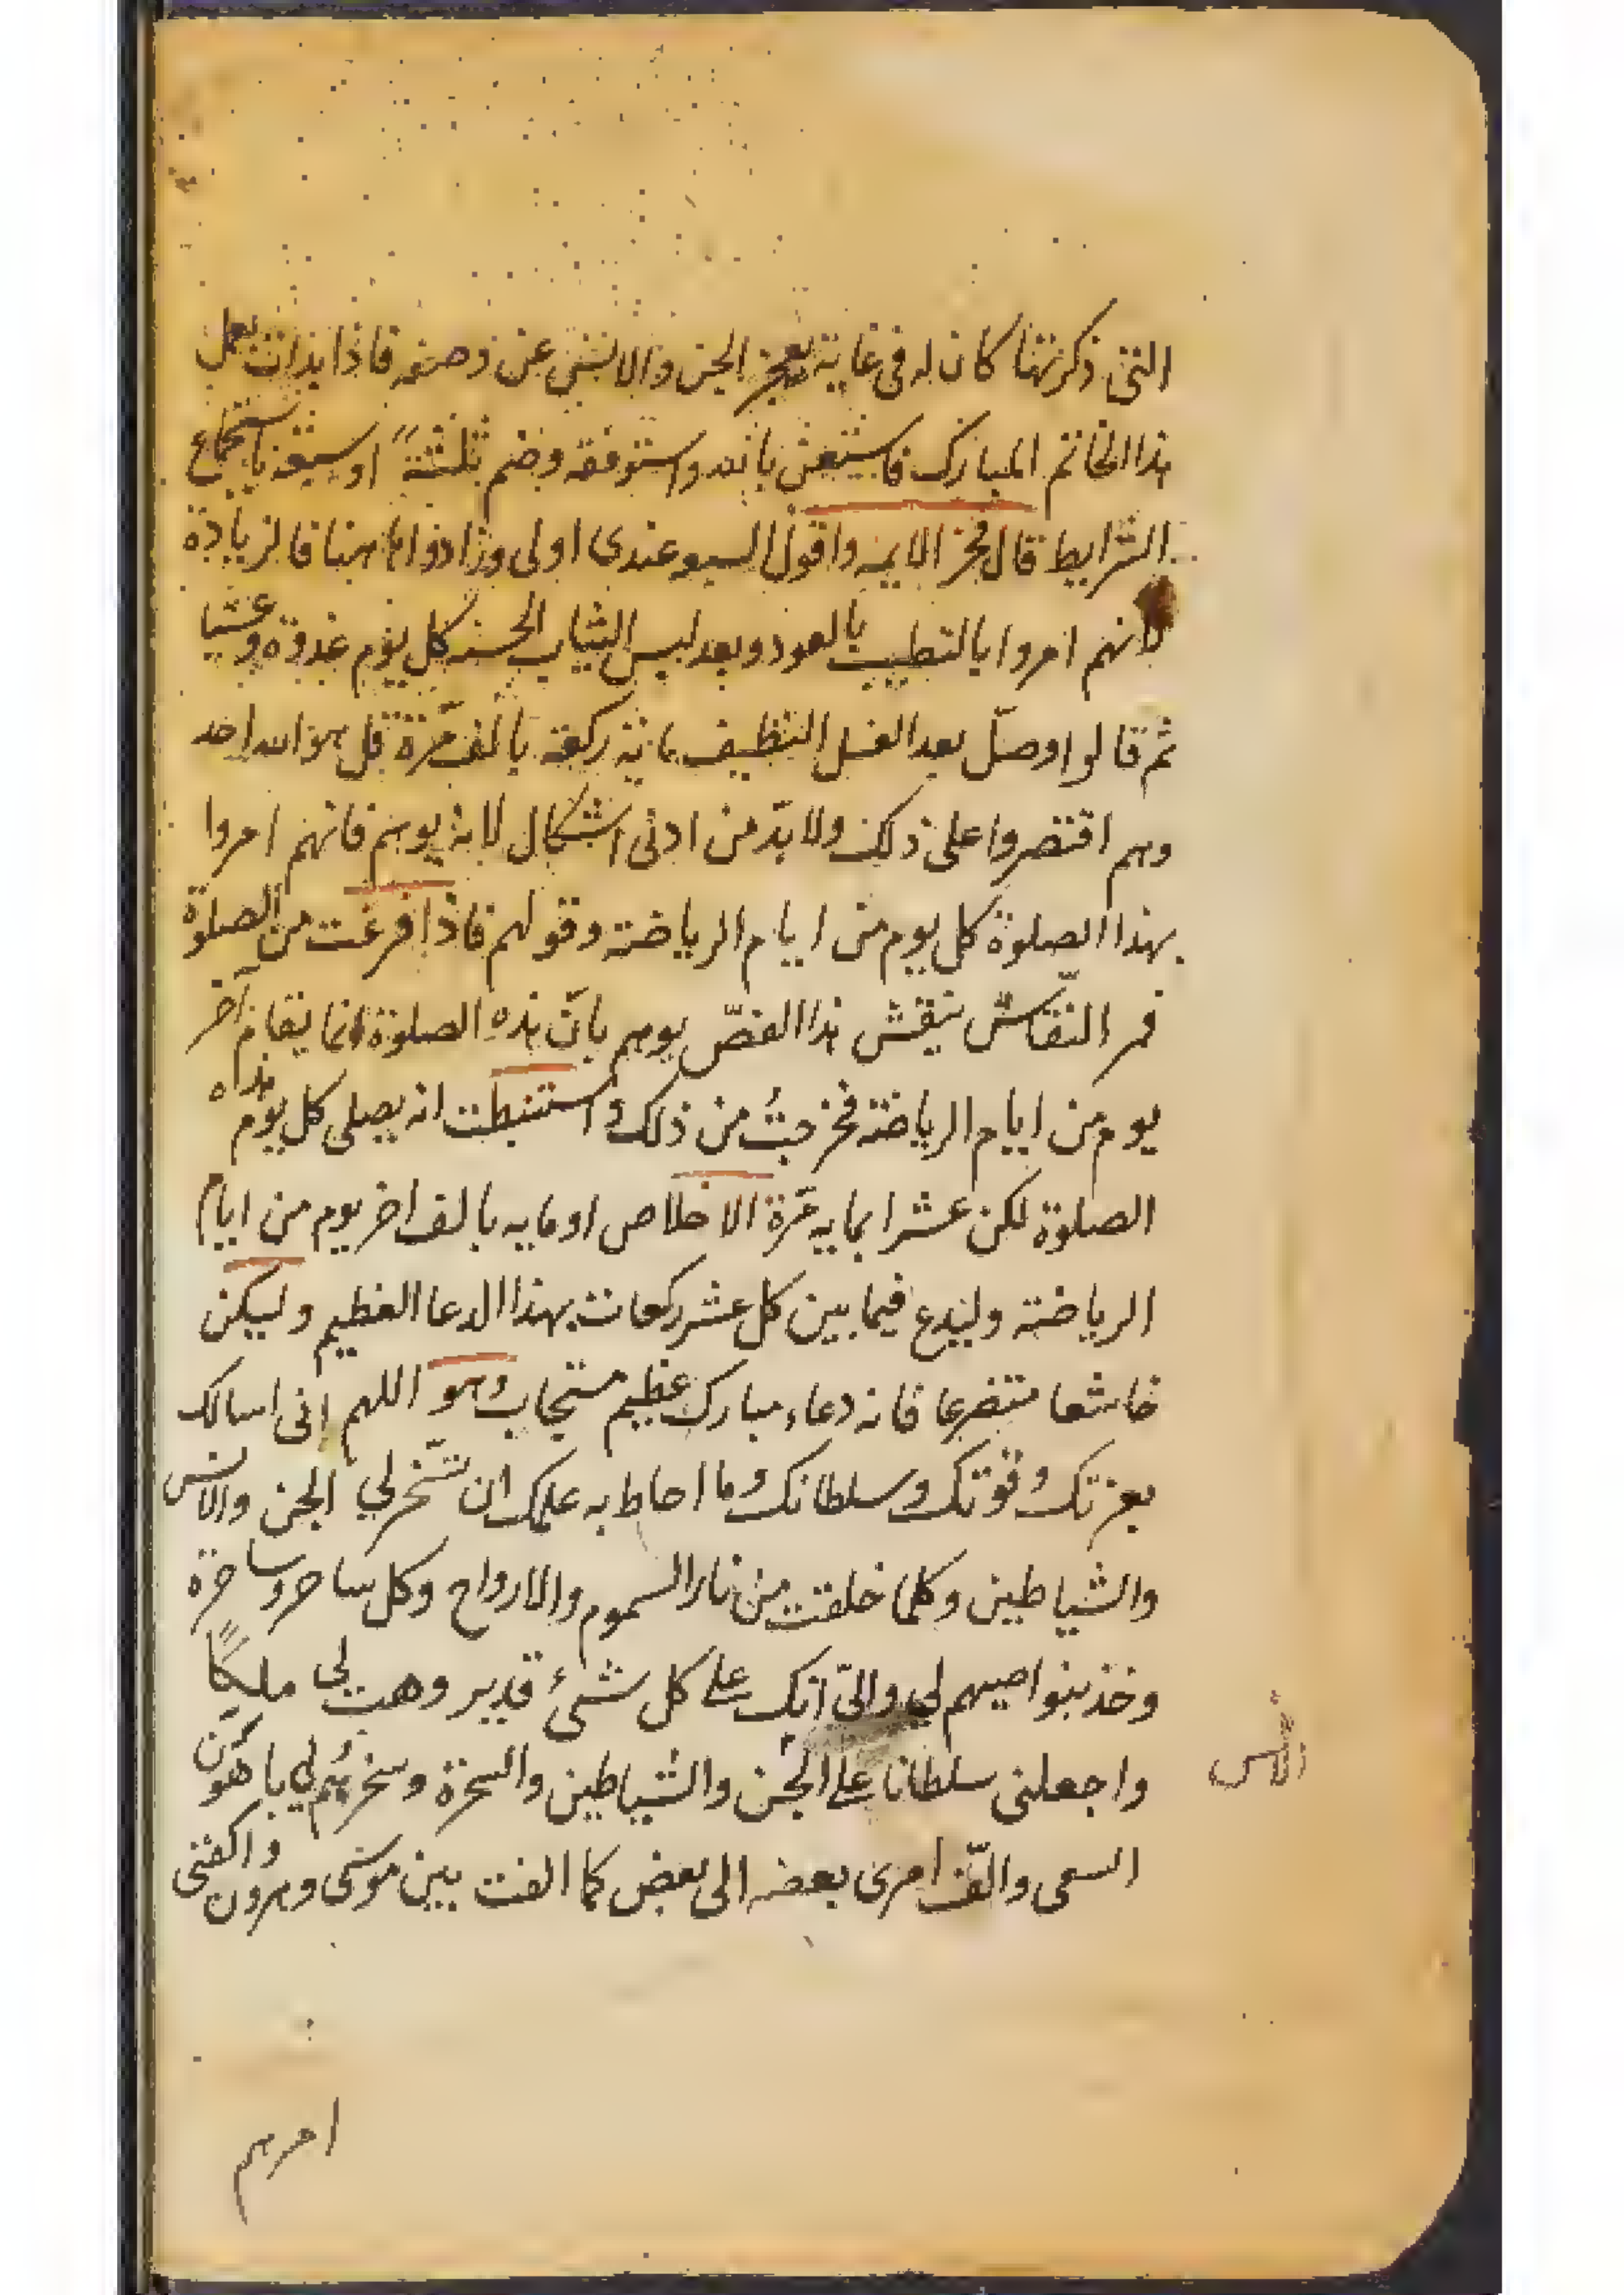 التى ذكرتها كان له فى غاية يعجز الجن والانس عن وصفه فاذا بدات بعمل
هذا الخاتم المبارك فاستعن بالله واستوفقه وضم ثلثةً او سبعة باستجماع
الشرايط قال فخر الايمه واقول السبع عندى اولى وزادوا هاهنا فالزيادة
لانهم امروا بالتطيب بالعود وبعد لبس الثياب الحسنه كل يوم غدوة وعشيا
ثم قالوا وصلّ بعد الغسل التنظيف ماية ركعة بالف مرّة قل هو الله احد
وهم اقتصروا على ذلك ولا بدّ من ادنى اشكال لانه يوهم فانهم امروا
بهذا الصلوة كل يوم من ايام الرياضة وقولهم فاذا فرغت من الصلوة
فمر النقّاش ينقش هذا الفصّ يوهم بانّ هذه الصلوة انما يقام آخر
يوم من ايام الرياضة فخرجتُ من ذلك واستنبطت انه يصلى كل يوم هذه
الصلوة لكن عشرا بمايه مرّة الاخلاص او مايه بالف اخر يوم من ايام
الرياضة وليدع فيما بين كل عشر ركعات بهذا الدعا العظيم وليكن
خاشعا متضرعا فانه دعاء مبارك عظيم مستجاب وهو اللهم انى اسالك
بعزتك وقوتك وسلطانك وما احاط به علمك ان تسّخر لي الجن والانس
والشياطين وكلما خلقت من نار السموم والارواح وكل ساحر وساحرة
وخذ بنواصيهم لي والىّ انك على كل شئ قدير وهب لى ملكًا
واجعلنى سلطانا على الجن والشياطين والسحرة وسخرهُم لي باهون
السعى والّف امرى بعضه الى بعض كما الفت بين موسى وهرون واكفنى
امرهم